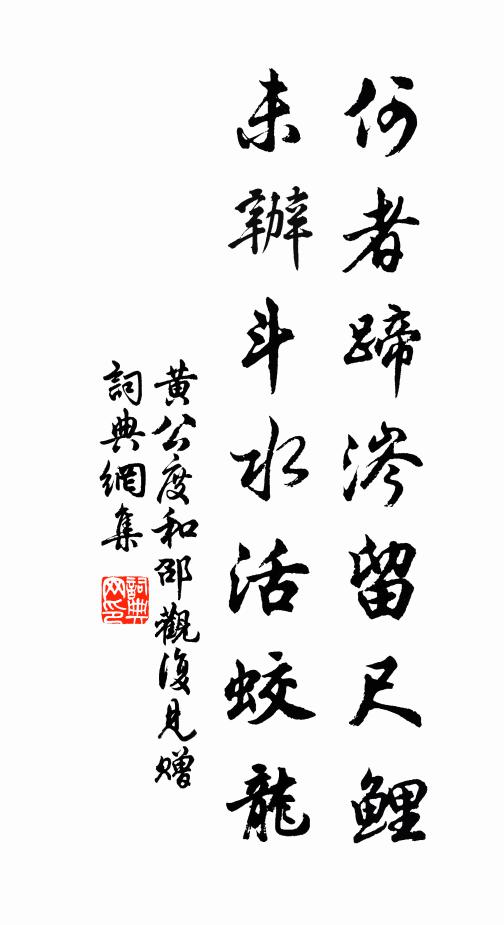 何者蹄涔留尺鯉
未辦斗水活蛟龍
黃公度和邵觀復見贈
詞典網集
詞典網印